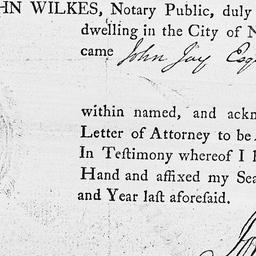 HN WILKES, Notary Public, duly
dwelling in the City of N
came John Jay Esq
within named, and ackn
Letter of Attorney to be
In Teſtimony whereof I h
Hand and affixed my Sea
and Year laſt aforeſaid.